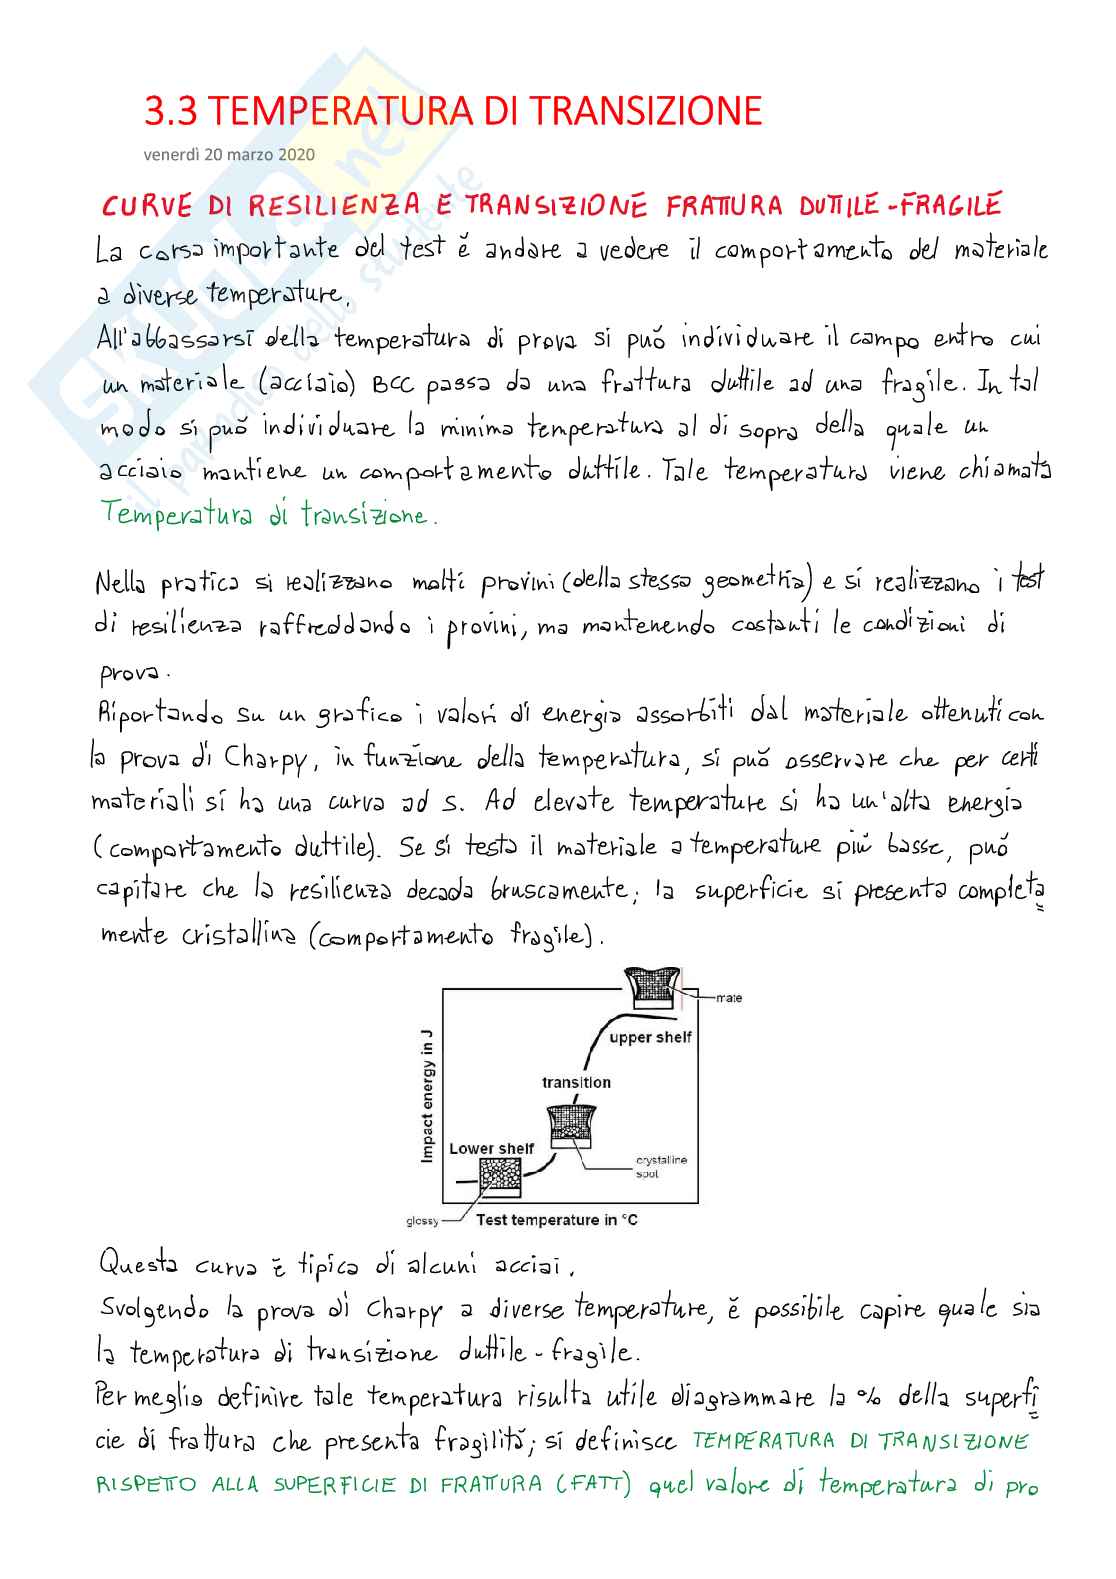 3.3 TEMPERATURA DI TRANSIZIONE
venerdì 20 marzo 2020
CURVE DI RESILIENZA E TRANSIZIONE FRATTURA DUTTILE-FRAGILE
La corsa importante del test è andare a vedere il comportamento del materiale
a diverse temperature.
All'abbassarsi della temperatura di prova si può individuare il campo entro cui
un materiale (acciaio) BCC passa da una frattura duttile ad una fragile. In tal
modo si può individuare la minima temperatura al di sopra della quale un
acciaio mantiene un comportamento duttile. Tale temperatura viene chiamata
Temperatura di transizione.
Nella pratica si realizzano molti provini (della stessa geometria) e si realizzano i test
di resilienza raffreddando i provini, ma mantenendo costanti le condizioni di
prova.
Riportando su un grafico i valori di energia assorbiti dal materiale ottenuti con
la prova di Charpy, in funzione della temperatura, si può osservare che per certi
materiali si ha una curva ad s. Ad elevate temperature si ha un'alta energia
(comportamento duttile). Se si testa il materiale a temperature più basse, può
capitare che la resilienza decada bruscamente; la superficie si presenta completa
mente cristallina (comportamento fragile).
mate
upper shelf
transition
Impact energy in J
Lower shelf
crystalline
spot
glossy
Test temperature in °C
Questa curva è tipica di alcuni acciai.
Svolgendo la prova di Charpy a diverse temperature, è possibile capire quale sia
la temperatura di transizione duttile-fragile.
Per meglio definire tale temperatura risulta utile diagrammare la % della superfi
cie di frattura che presenta fragilità; si definisce TEMPERATURA DI TRANSIZIONE
RISPETTO ALLA SUPERFICIE DI FRATTURA (FATT) quel valore di temperatura di pro
SKUOLA.net
il paradiso dello studente